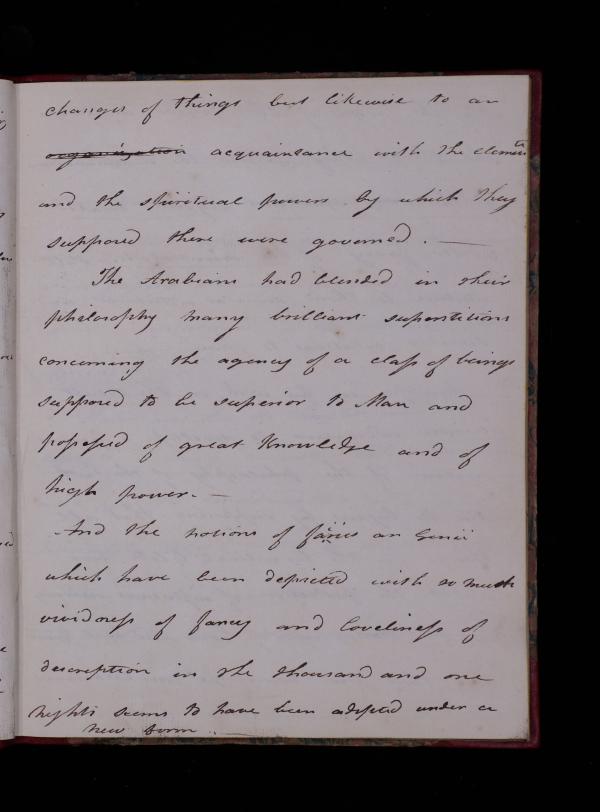 changes of things but likewise to an
organization acquaintance with the elements
and the spiritual powers by which they
supposed these were governed. —
The Arabians had blended in their
philosophy many brilliant superstitions
concerning the agency of a class of beings
supposed to be superior to Man and
possessed of great Knowledge and of
high power. —
And the notions of faries an Genii
which have been depicted with so much
vividness of fancy and loveliness of
description in the thousand and one
nights seems to have been adopted under a
new form. —